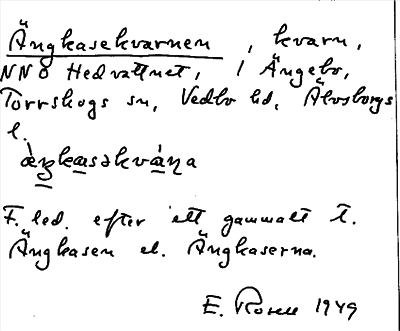 Ängkasekvarnen, kvarn,
NNO Hedvattnet, i Ängebo,
Torrskogs sn, Vedbo hd, Älvsborgs
l.
æŋkasəkvàɳa
F. led. efter ett gammalt t.
Ängkasen el. Ängkaserna.
E. Rosell 1949